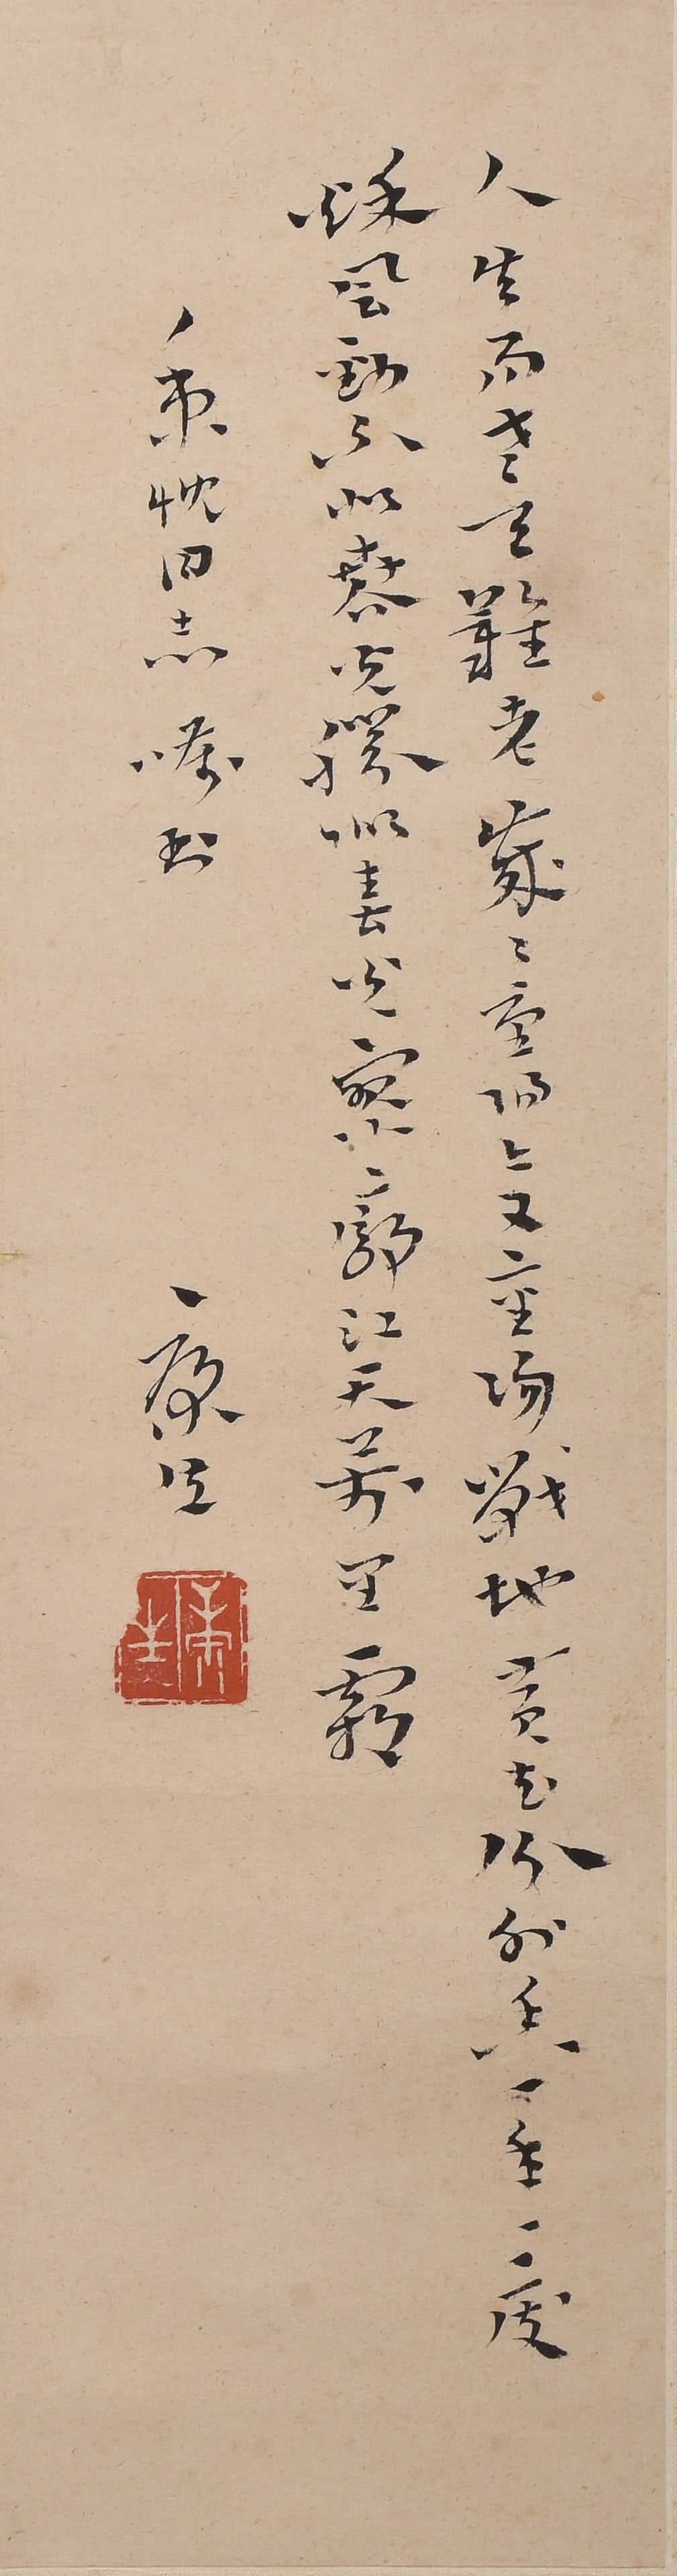 人生易老天難老歲〻重陽今又重陽戰地黃花分外香一年一度
秋風勁不似春光勝似春光寥廓江天萬里霜
秉忱同志 囑書 康生
康生